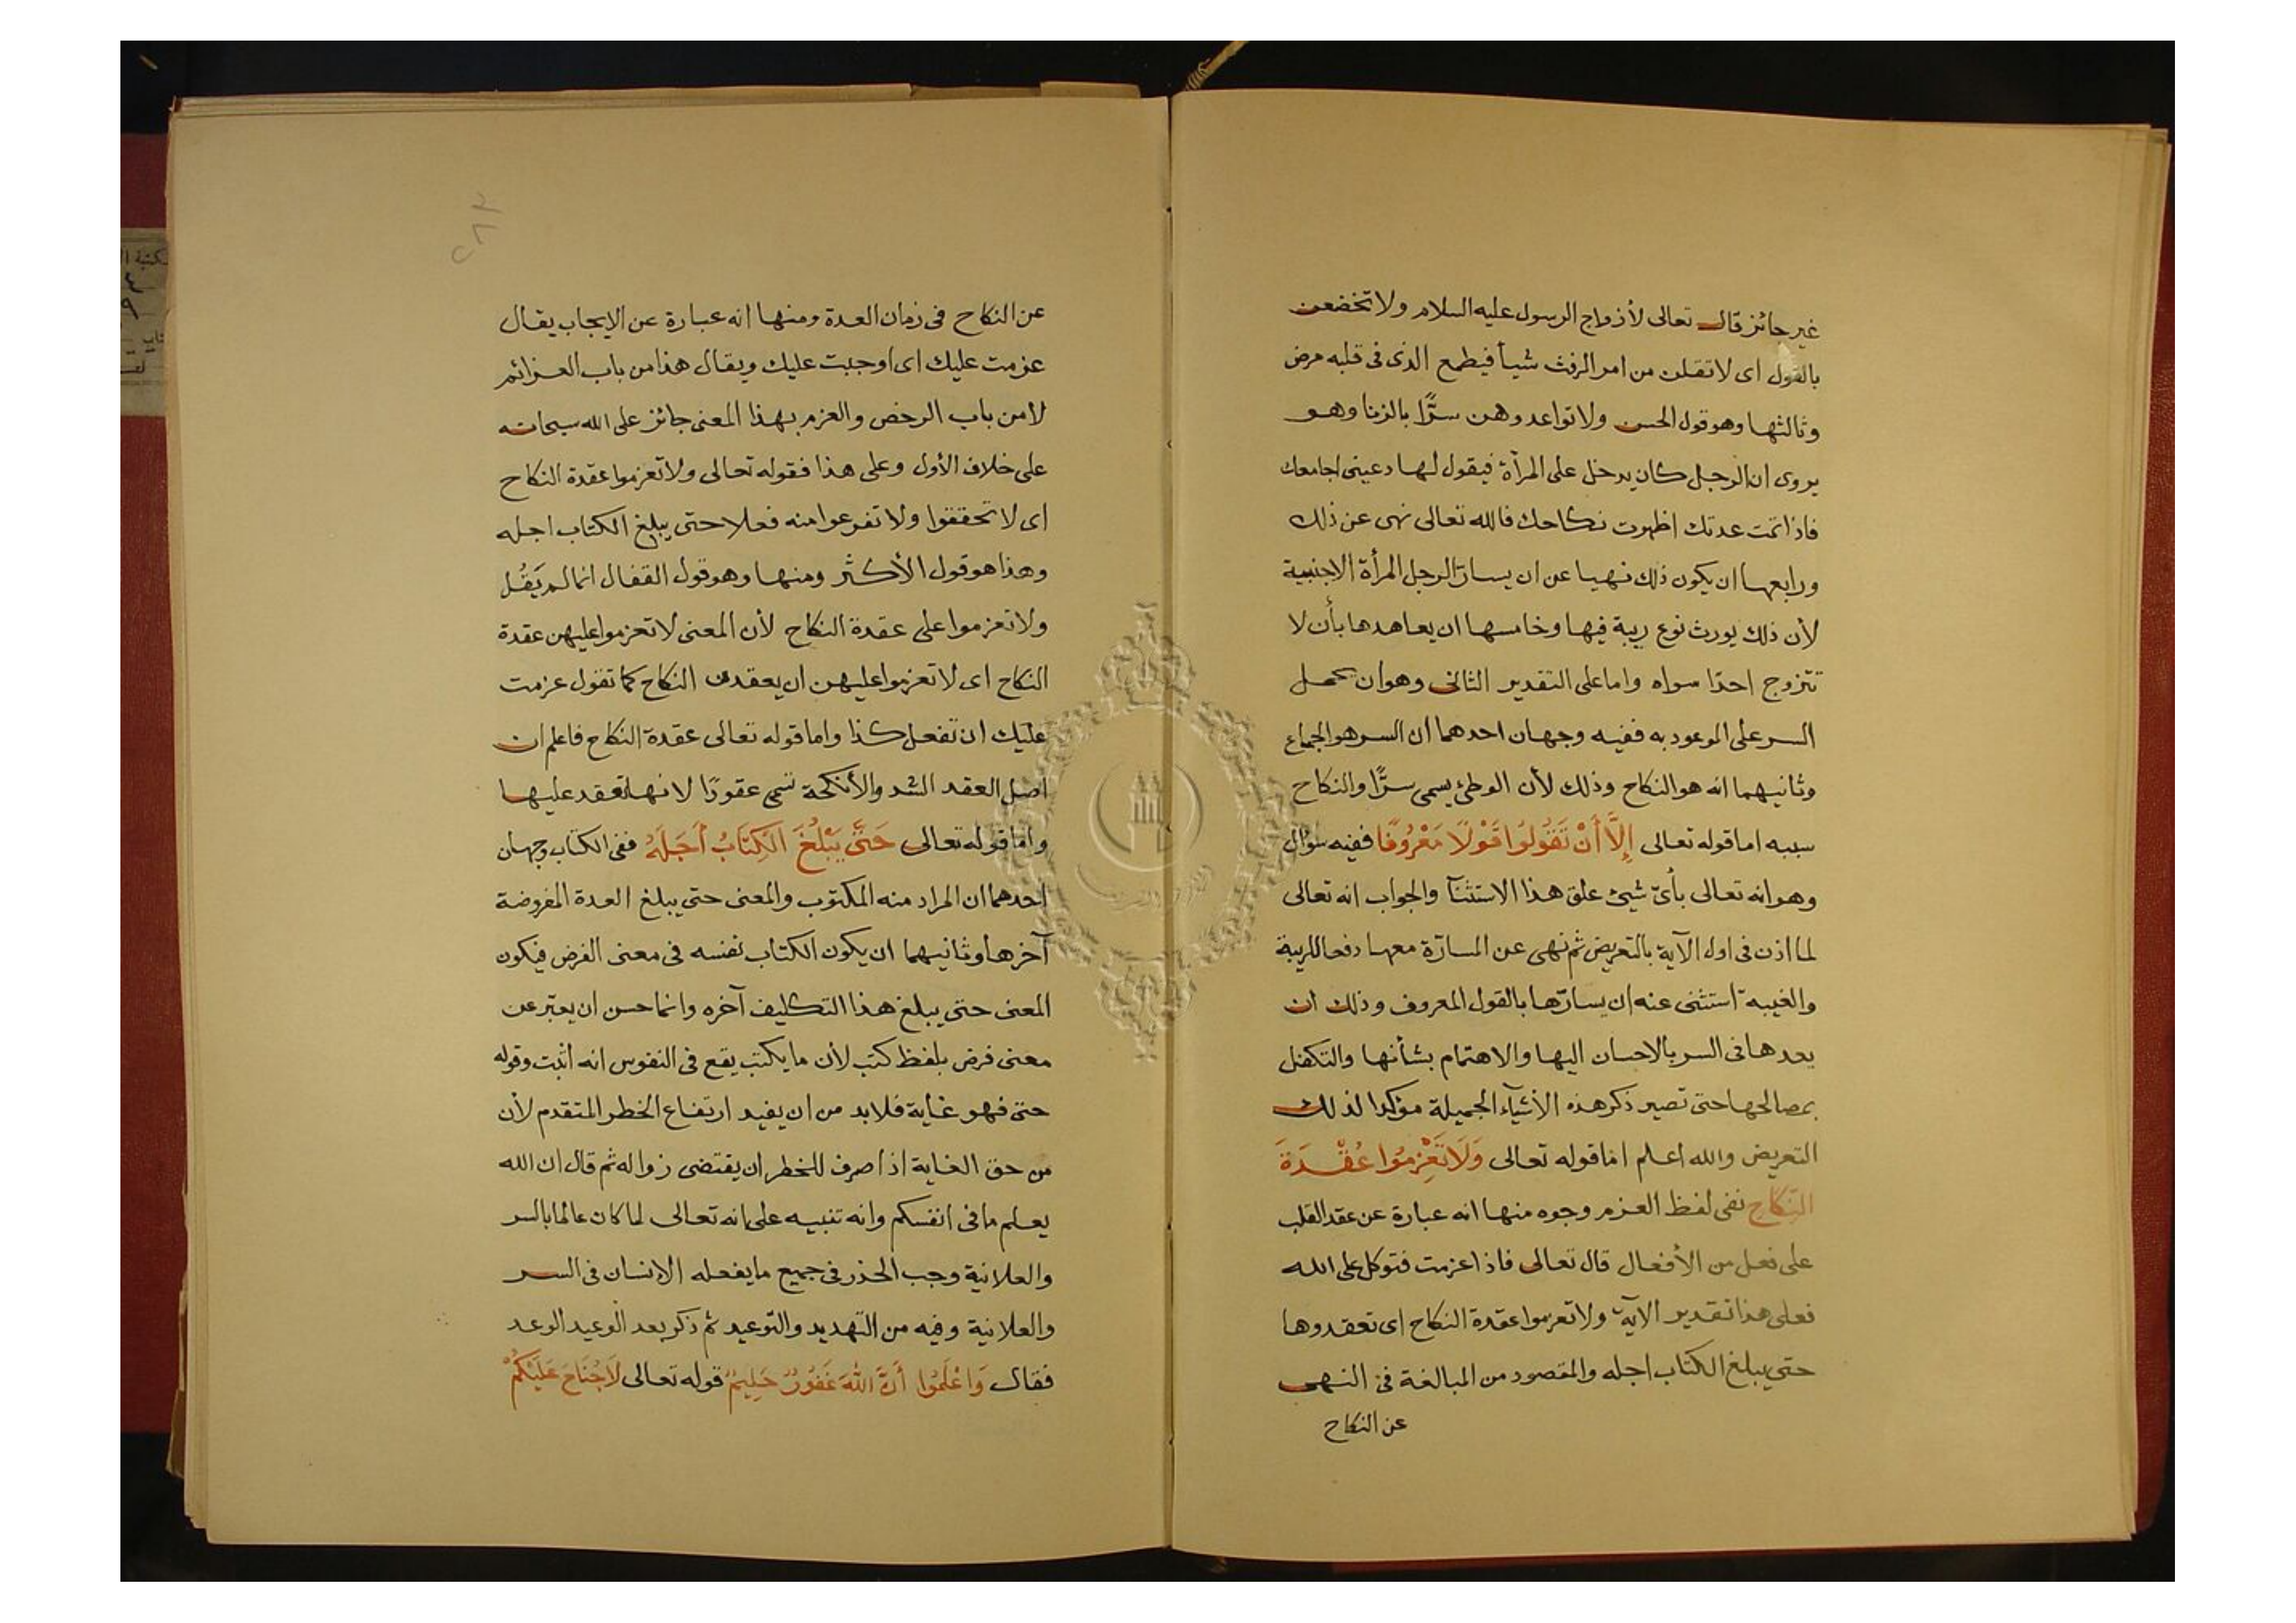 غير جائز قال تعالى لأزواج الرسول عليه السلام ولا تخضعن
بالقول اى لا تقلن من امر الرفث شيأ فيطمع الذى فى قلبه مرض
وثالثها وهو قول الحسن ولا تواعدوهن سرًّا بالزنا وهو
يروى ان الرجل كان يدخل على المرأة فيقول لها دعينى اجامعك
فاذا تمت عدتك اظهرت نكاحك فالله تعالى نهى عن ذلك
ورابعها ان يكون ذلك نهيا عن ان يسارّ الرجل المرأة الاجنبية
لأن ذلك يورث نوع ريبة فيها وخامسها ان يعاهدها بأن لا
تتزوج احدًا سواه واما على التقدير الثانى وهو ان يحمل
السر على الموعود به ففيه وجهان احدهما ان السر هو الجماع
وثانيهما انه هو النكاح وذلك لأن الوطئ يسمى سرًّا والنكاح
سببه اما قوله تعالى إِلَّا أَنْ تَقُولُوا قَوْلًا مَعْرُوفًا ففيه سؤال
وهو انه تعالى بأىّ شيئ علق هذا الاستثنآ والجواب انه تعالى
لما اذن فى اول الآية بالتعريض ثم نهى عن المسارّة معها دفعا للريبة
والغيبه استثنى عنه ان يسارّها بالقول المعروف وذلك ان
يعدها فى السر بالاحسان اليها والاهتمام بشأنها والتكفل
بمصالحها حتى تصير ذكر هذه الأشيآء الجميلة مؤكدا لذلك
التعريض والله اعلم اما قوله تعالى وَلَا تَعْزِمُوا عُقْدَةَ
النِّكَاحِ نفى لفظ العزم وجوه منها انه عبارة عن عقد القلب
على فعل من الأفعال قال تعالى فاذا عزمت فتوكل على الله
فعلى هذا تقدير الآية ولا تعزموا عقدة النكاح اى تعقدوها
حتى يبلغ الكتاب اجله والمقصود من المبالغة فى النهى
عن النكاح
٢٨٣
عن النكاح فى زمان العدة ومنها انه عبارة عن الايجاب يقال
عزمت عليك اى اوجبت عليك ويقال هذا من باب العزائم
لا من باب الرخص والعزم بهذا المعنى جائز على الله سبحانه
على خلاف الأول وعلى هذا فقوله تعالى ولا تعزموا عقدة النكاح
اى لا تحققوا ولا تفرعوا منه فعلا حتى يبلغ الكتاب اجله
وهذا هو قول الأكثر ومنها وهو قول القفال انما لم يَقُل
ولا تعزموا على عقدة النكاح لأن المعنى لا تعزموا عليهن عقدة
النكاح اى لا تعزموا عليهن ان يعقدن النكاح كما تقول عزمت
عليك ان تفعل كذا واما قوله تعالى عقدة النكاح فاعلم ان
اصل العقد الشد والأنكحة تسمى عقودًا لانها تعقد عليها
واما قوله تعالى حَتَّى يَبْلُغَ الْكِتَابُ أَجَلَهُ ففى الكتاب وجهان
احدهما ان المراد منه المكتوب والمعنى حتى يبلغ العدة المفروضة
آخرها وثانيهما ان يكون الكتاب نفسه فى معنى الفرض فيكون
المعنى حتى يبلغ هذا التكليف آخره وانما حسن ان يعبّر عن
معنى فرض بلفظ كتب لأن ما يكتب يقع فى النفوس انه اثبت وقوله
حتى فهو غاية فلابد من ان يفيد ارتفاع الخطر المتقدم لأن
من حق الغاية اذا صرف للخطر ان يقتضى زواله ثم قال ان الله
يعلم ما فى انفسكم وانه تنبيه على انه تعالى لما كان عالما بالسر
والعلانية وجب الحذر فى جميع ما يفعله الانسان فى السر
والعلانية وفيه من التهديد والتوعيد ثم ذكر بعد الوعيد الوعد
فقال وَاعْلَمُوا أَنَّ اللهَ غَفُورٌ حَلِيمٌ قوله تعالى لَا جُنَاحَ عَلَيْكُمْ